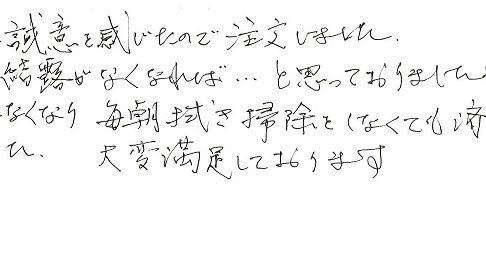 誠意を感じたので注文しました.
結露がなくなれば…と思っておりました
なくなり 毎朝拭き掃除をしなくても済
た. 大変満足しております